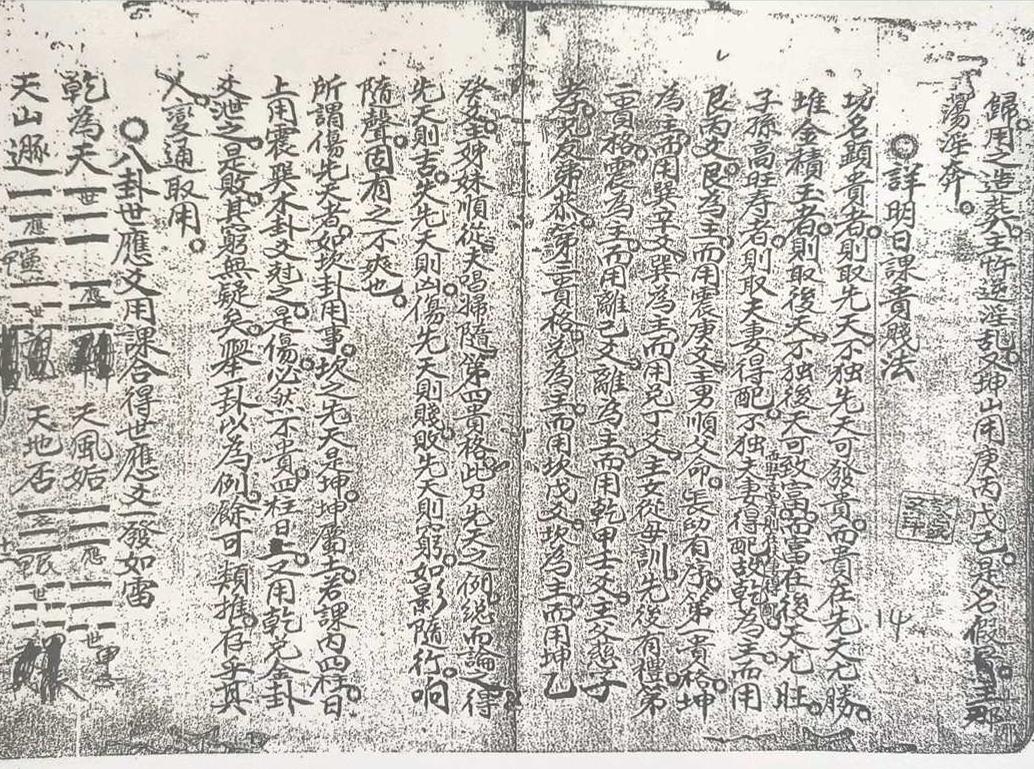 歸用之造葬主竹逆淫乱又坤山用庚丙戊己是名假
蕩淫奔
詳明日課貴賤法
坊名顯貴者則取先天不独先天可發貴而貴在先天尤勝
堆金積玉者則取後天不独後天可致富而富在後天尤旺
子孫高旺寿者則取夫妻得配不独夫妻得配故乾為主而用
艮丙爻艮為主而用震庚爻主男順父命長幼有序第一貴格坤
為主而用巽辛爻巽為主而用兌丁爻主女從母訓先後有禮第
二貴格震為主而用離己爻離為主而用乾甲壬爻主父慈子
孝兄友弟恭第三貴格兌為主而用坎戊爻坎為主而用坤乙
癸爻主姊妹順從夫唱婦隨第四貴格此乃先天之例総而論之得
先天則吉失先天則凶傷先天則賤敗先天則窮如影随行响
随聲固有之不爽也
所謂傷先天者如坎卦用事坎之先天是坤坤屬土若課內四柱日
上用震巽木卦爻尅之是傷必然不貴四柱日上又用乾兌金卦
爻泄之是敗其窮無疑矣舉一卦以為例餘可類推存乎其
人變通取用
八卦世應爻用課合得世應爻一發如雷
乾為天 世 應 天風姤 應 世
天山遯 應 世 天地否 應 世
14